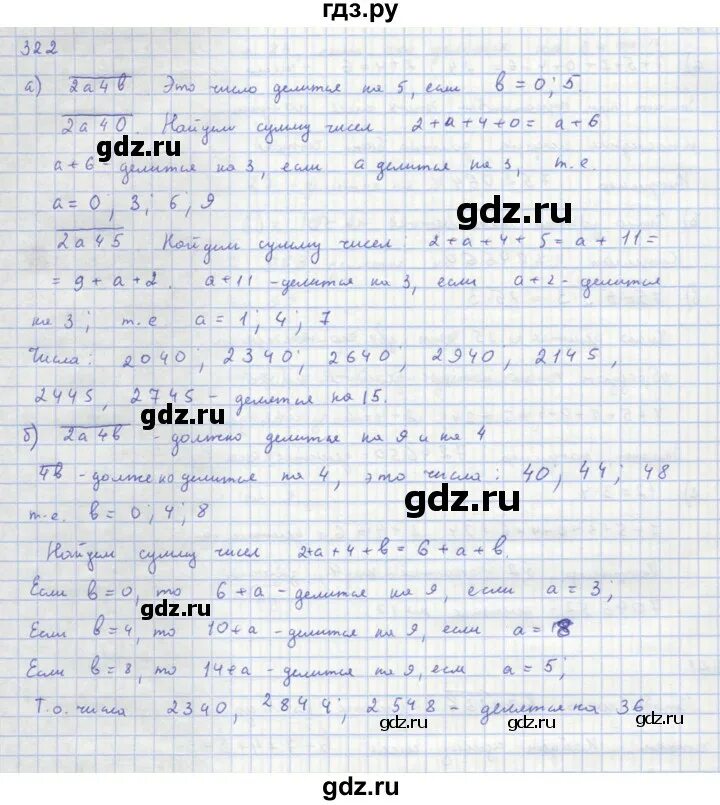 гдз.ру
322
а) 2а4в Это число делится на 5, если в = 0; 5.
2а40. Найдем сумму чисел 2+а+4+0= а+6
gdz.ru
а+6 - делится на 3, если а делится на 3, т.е.
а = 0; 3; 6; 9
gdz.ru
2а45. Найдем сумму чисел: 2+а+4+5=а+11=
= 9+а+2. а+11 - делится на 3, если а+2 - делится
на 3; т.е. а = 1; 4; 7
Числа: 2040; 2340; 2640; 2940, 2145,
2445, 2745 - делятся на 15.
gdz.ru
б) 2а4в - должно делится на 9 и на 4
4в - должно делится на 4, это числа: 40; 44; 48
gdz.ru
т.е. в = 0; 4; 8
Найдем сумму чисел 2+а+4+в = 6+а+в.
Если в = 0, то 6+а - делится на 9, если а = 3;
gdz.ru
Если в = 4, то 10+а - делится на 9, если а = 8
Если в = 8, то 14+а - делится на 9, если а = 5;
Т.о. числа 2340, 2844; 2548 - делятся на 36
gdz.ru gdz.ru gdz.ru
gdz.ru